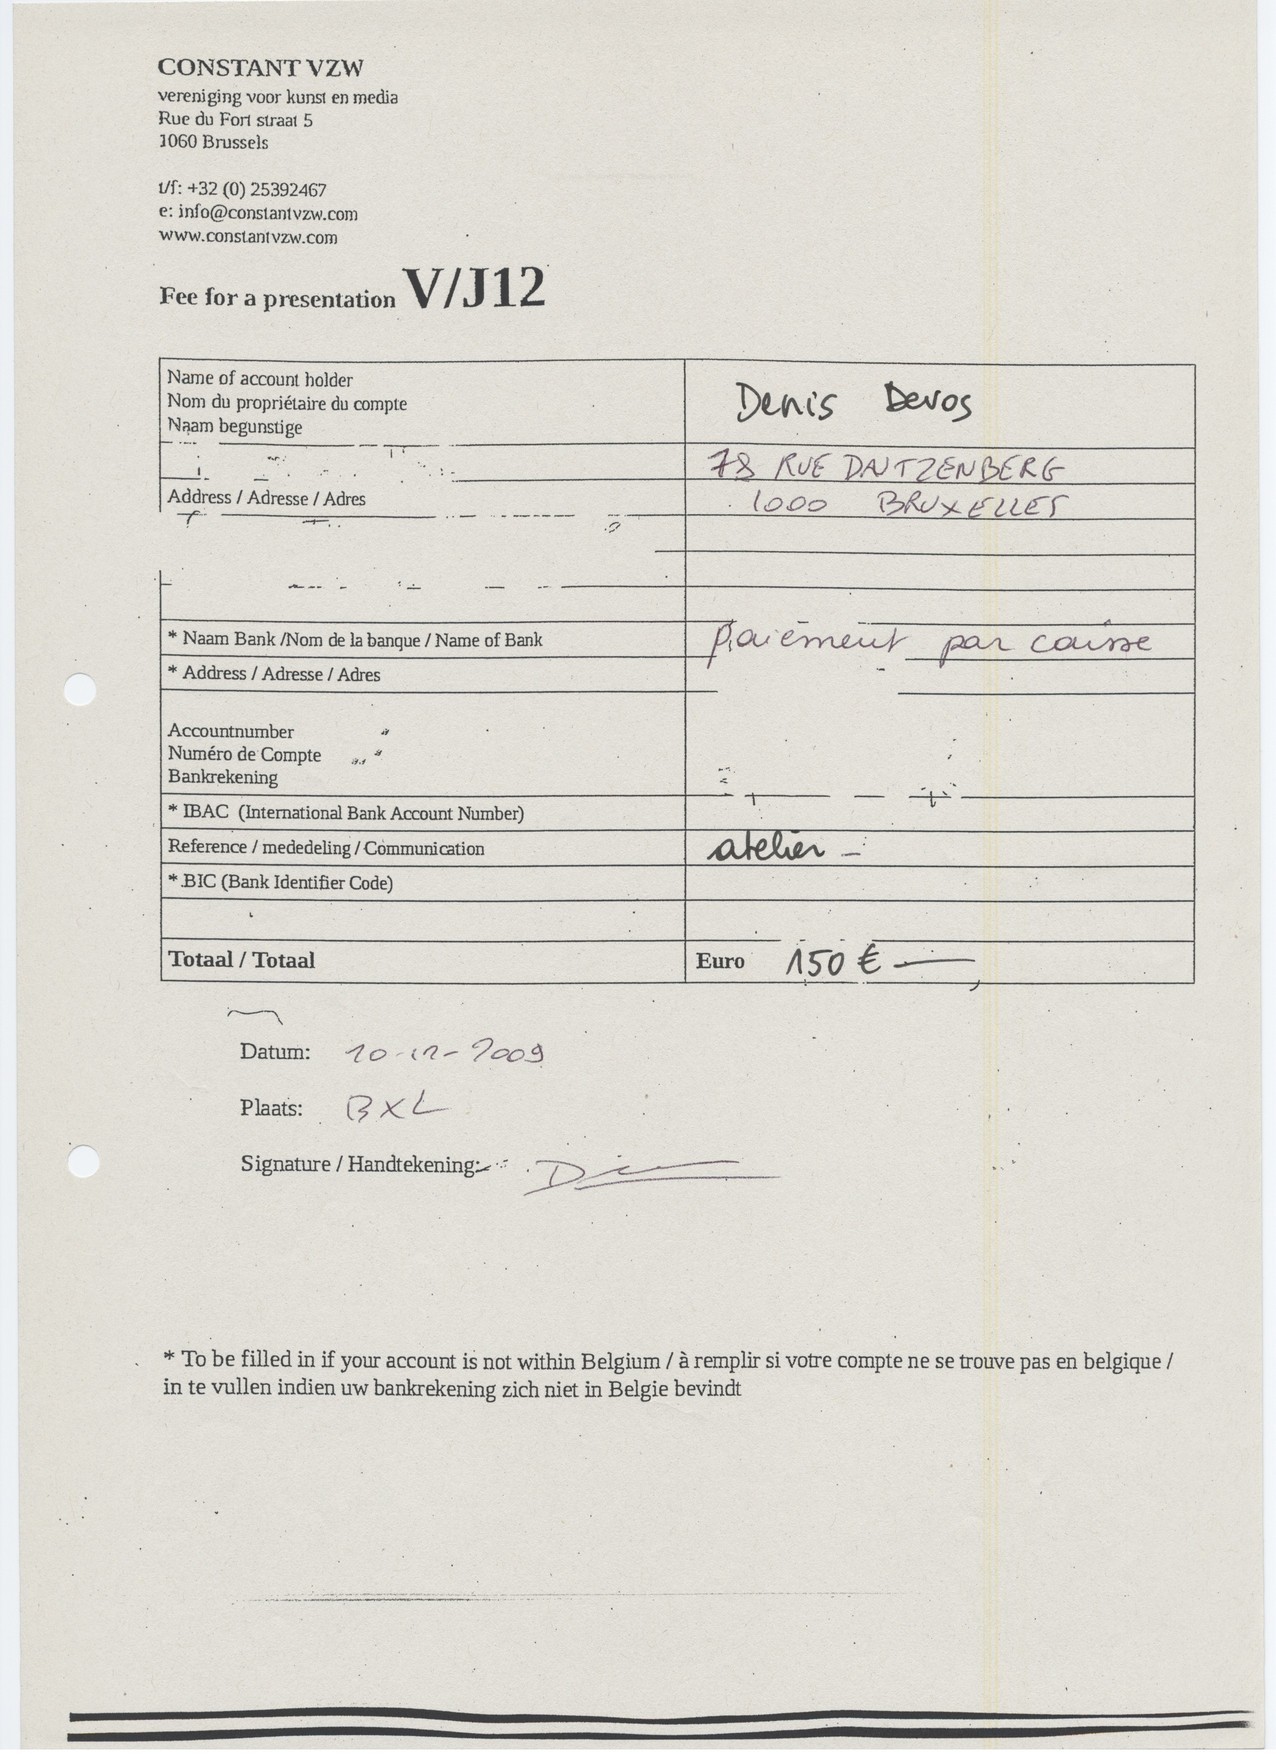 CONSTANT VZW
vereniging voor kunst en media
Rue du Fort straat 5
1060 Brussels
t/f: +32 (0) 25392467
e: info@constantvzw.com
www.constantvzw.com
Fee for a presentation V/J12
Name of account holder
Nom du propriétaire du compte
Naam begunstige
Denis Devos
78 RUE DAUTZENBERG
Address / Adresse / Adres
1000 BRUXELLES
* Naam Bank /Nom de la banque / Name of Bank
paiement par caisse
* Address / Adresse / Adres
Accountnumber
Numéro de Compte
Bankrekening
* IBAC (International Bank Account Number)
Reference / mededeling / Communication
atelier -
* BIC (Bank Identifier Code)
Totaal / Totaal
Euro 150 €
Datum: 10-12-2009
Plaats: BXL
Signature / Handtekening:
* To be filled in if your account is not within Belgium / à remplir si votre compte ne se trouve pas en belgique /
in te vullen indien uw bankrekening zich niet in Belgie bevindt